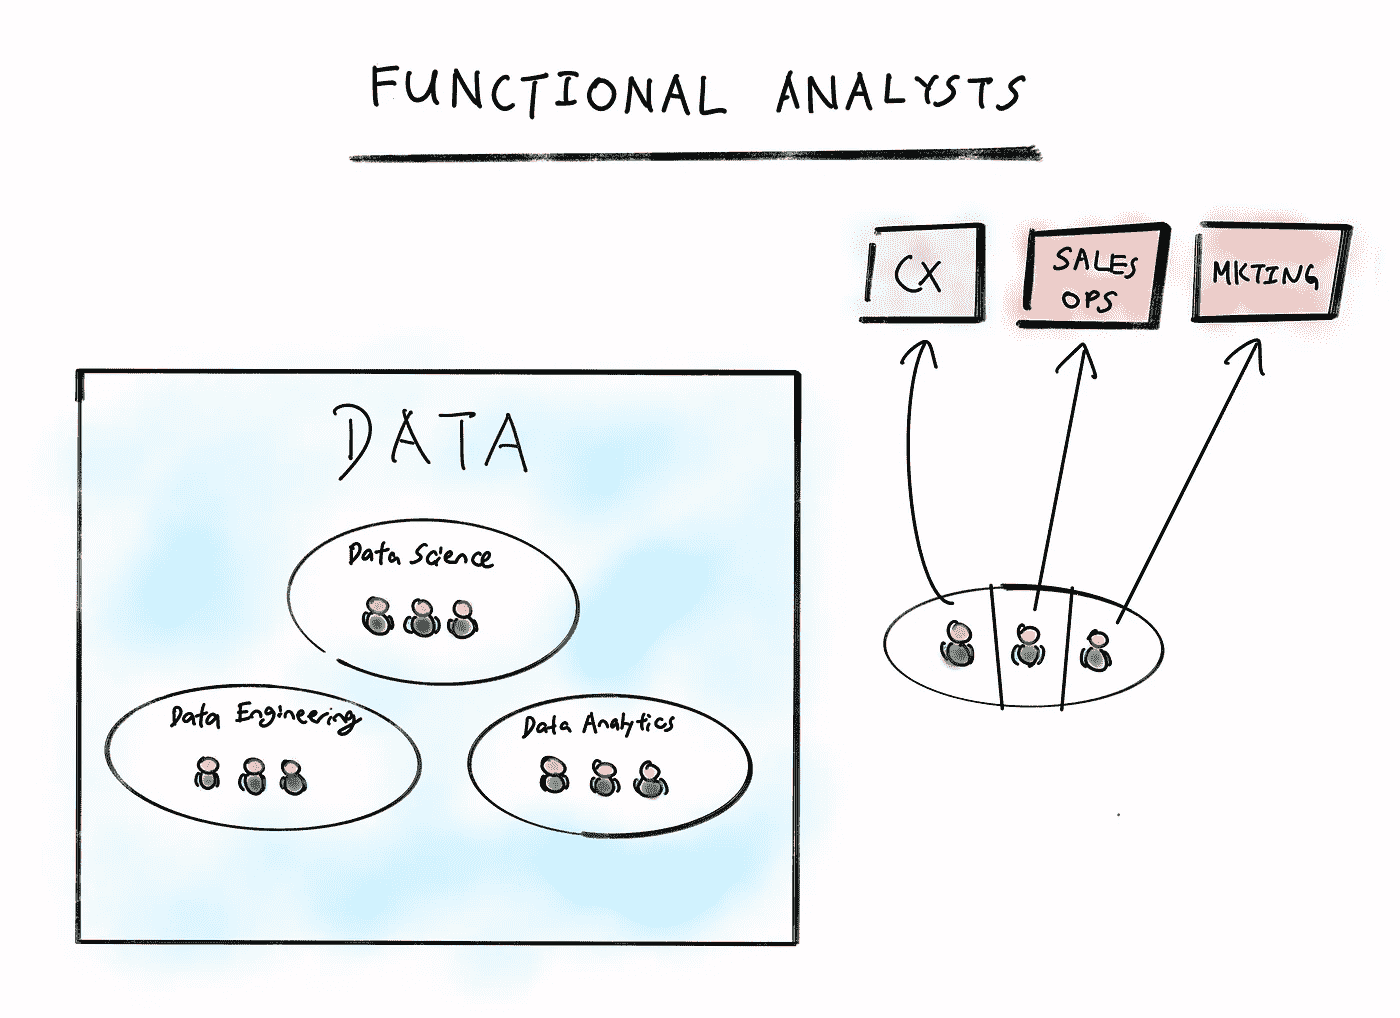 FUNCTIONAL ANALYSTS
CX
SALES
OPS
MKTING
DATA
Data Science
Data Engineering
Data Analytics